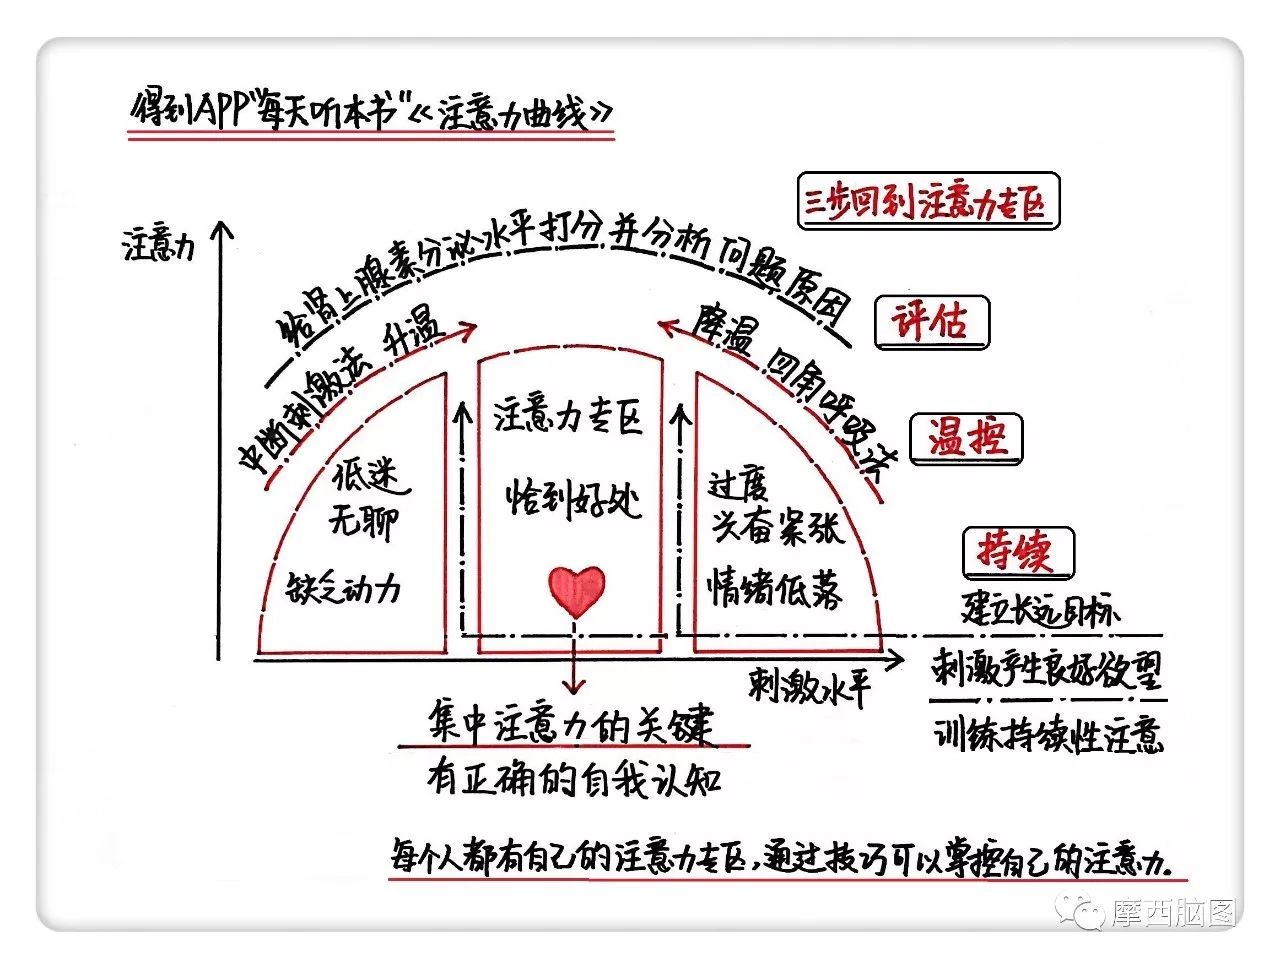 得到APP"每天听本书"《注意力曲线》
三步回到注意力专区
注意力
给肾上腺素分泌水平打分并分析问题原因
评估
中断刺激法 升温
降温 四角呼吸法
温控
低迷
无聊
缺乏动力
注意力专区
恰到好处
过度
兴奋紧张
情绪低落
持续
建立长远目标
刺激产生良好欲望
训练持续性注意
刺激水平
集中注意力的关键
有正确的自我认知
每个人都有自己的注意力专区,通过技巧可以掌控自己的注意力.
摩西脑图